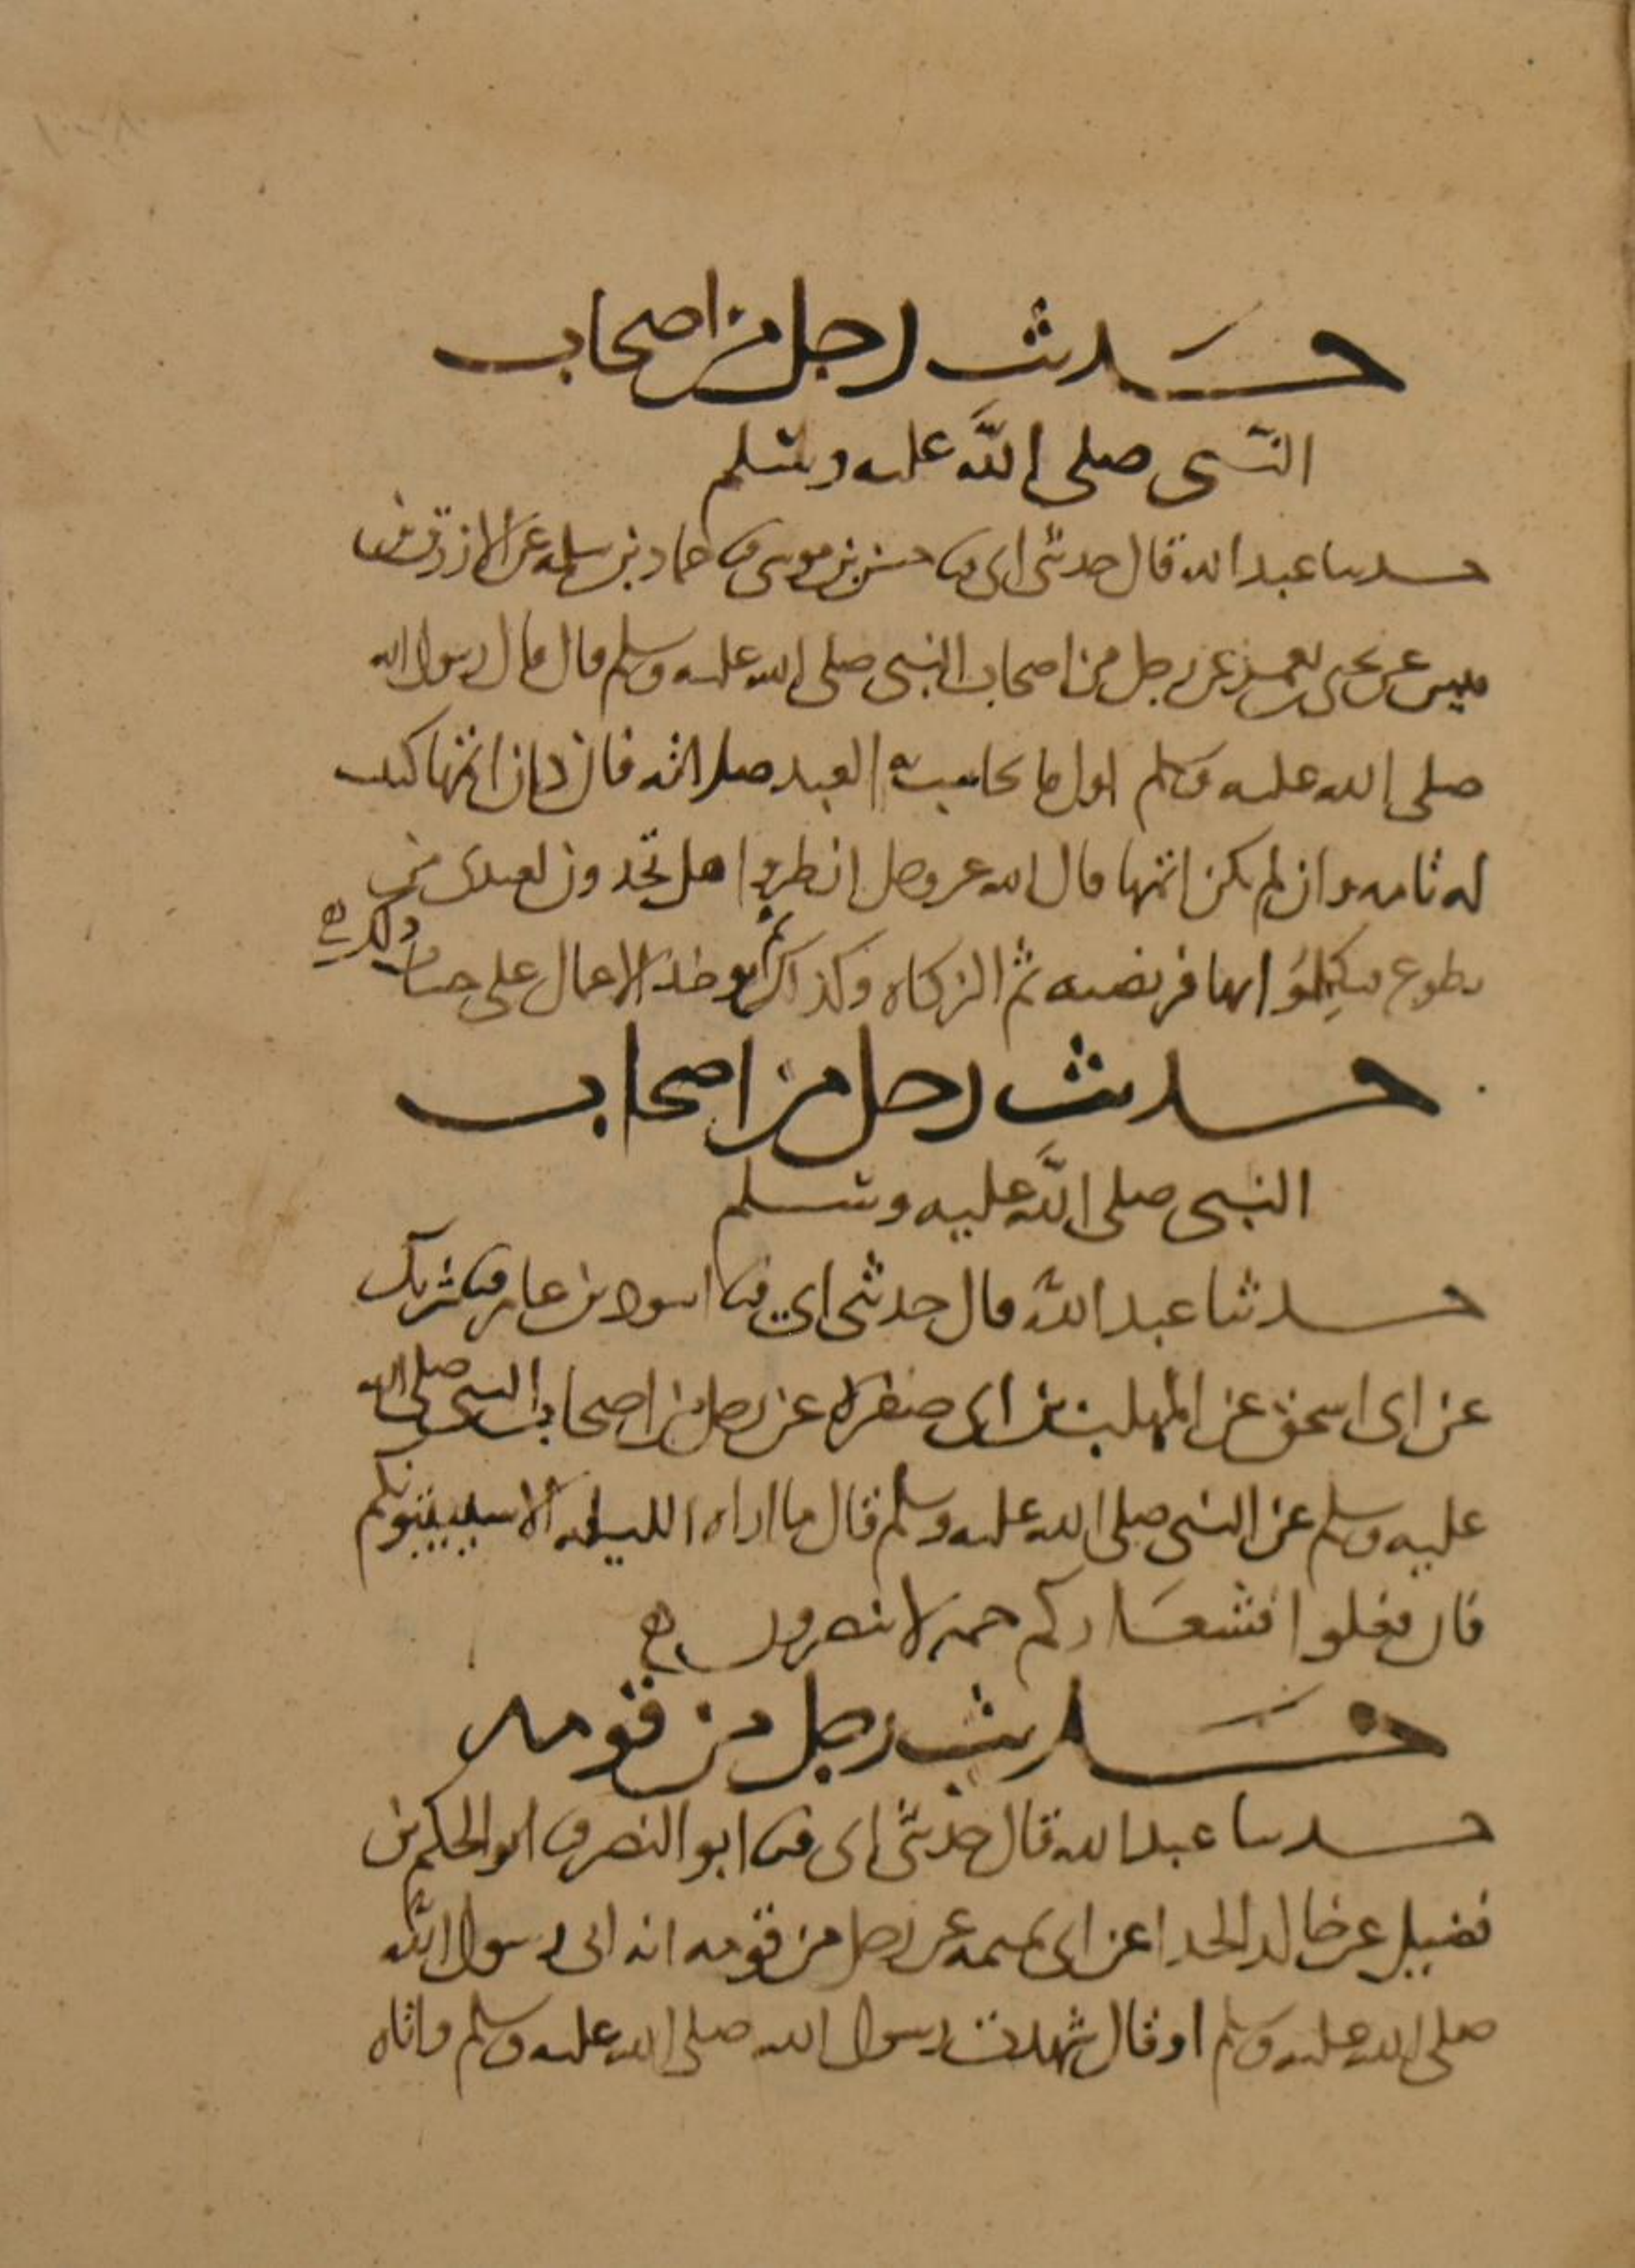 حديث رجل من اصحاب
النبي صلى الله عليه وسلم
حدثنا عبد الله قال حدثني ابي ثنا حسن بن موسى ثنا حماد بن سلمة عن الازرق بن
قيس عن يحيى بن يعمر عن رجل من اصحاب النبي صلى الله عليه وسلم قال قال رسول الله
صلى الله عليه وسلم اول ما يحاسب به العبد صلاته فان كان اتمها كتبت
له تامة وان لم يكن اتمها قال الله عز وجل انظروا هل تجدون لعبدي من
تطوع فتكملوا بها فريضته ثم الزكاة وكذلك ثم توخذ الاعمال على حساب
ذلك
حديث رجل من اصحاب
النبي صلى الله عليه وسلم
حدثنا عبد الله قال حدثني ابي ثنا اسود بن عامر ثنا شريك
عن ابي اسحق عن المهلب بن ابي صفرة عن رجل من اصحاب النبي صلى الله
عليه وسلم عن النبي صلى الله عليه وسلم قال ما اراه الليلة الا سيبيتونكم
فان فعلوا فشعاركم حم لا ينصرون
حديث رجل من قومه
حدثنا عبد الله قال حدثني ابي ثنا ابو النضر ثنا ابو الحكم بن
فضيل عن خالد الحذا عن ابي تميمة عن رجل من قومه انه اتى رسول الله
صلى الله عليه وسلم او قال شهدت رسول الله صلى الله عليه وسلم واتاه